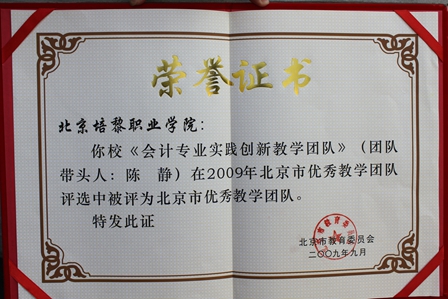 荣誉证书
北京培黎职业学院：
你校《会计专业实践创新教学团队》（团队
带头人：陈　静）在2009年北京市优秀教学团队
评选中被评为北京市优秀教学团队。
特发此证
北京市教育委员会
二〇〇九年九月